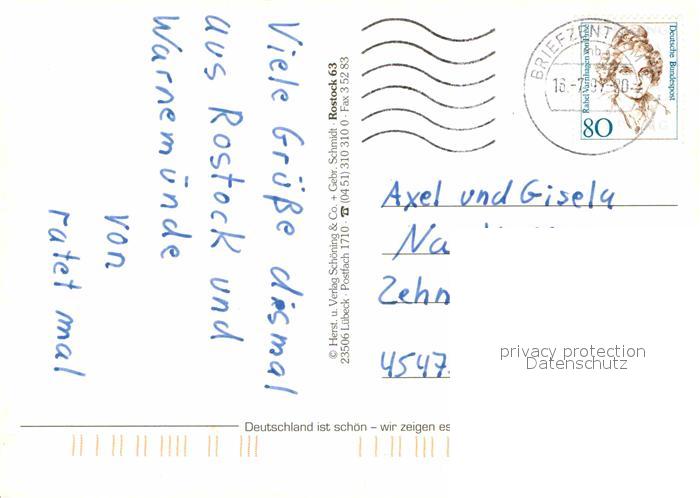 Viele Grüße diesmal
aus Rostock und
Warnemünde
von
ratet mal
© Herst. u. Verlag Schöning & Co. + Gebr. Schmidt · Rostock 63
23506 Lübeck · Postfach 1710 · ☎ (04 51) 310 310 0 · Fax 3 52 83
BRIEFZENTRUM
16.-7.97-20
Rahel Varnhagen von Ense
Deutsche Bundespost
80
Axel und Gisela
Na
Zehn
4547
privacy protection
Datenschutz
Deutschland ist schön – wir zeigen es